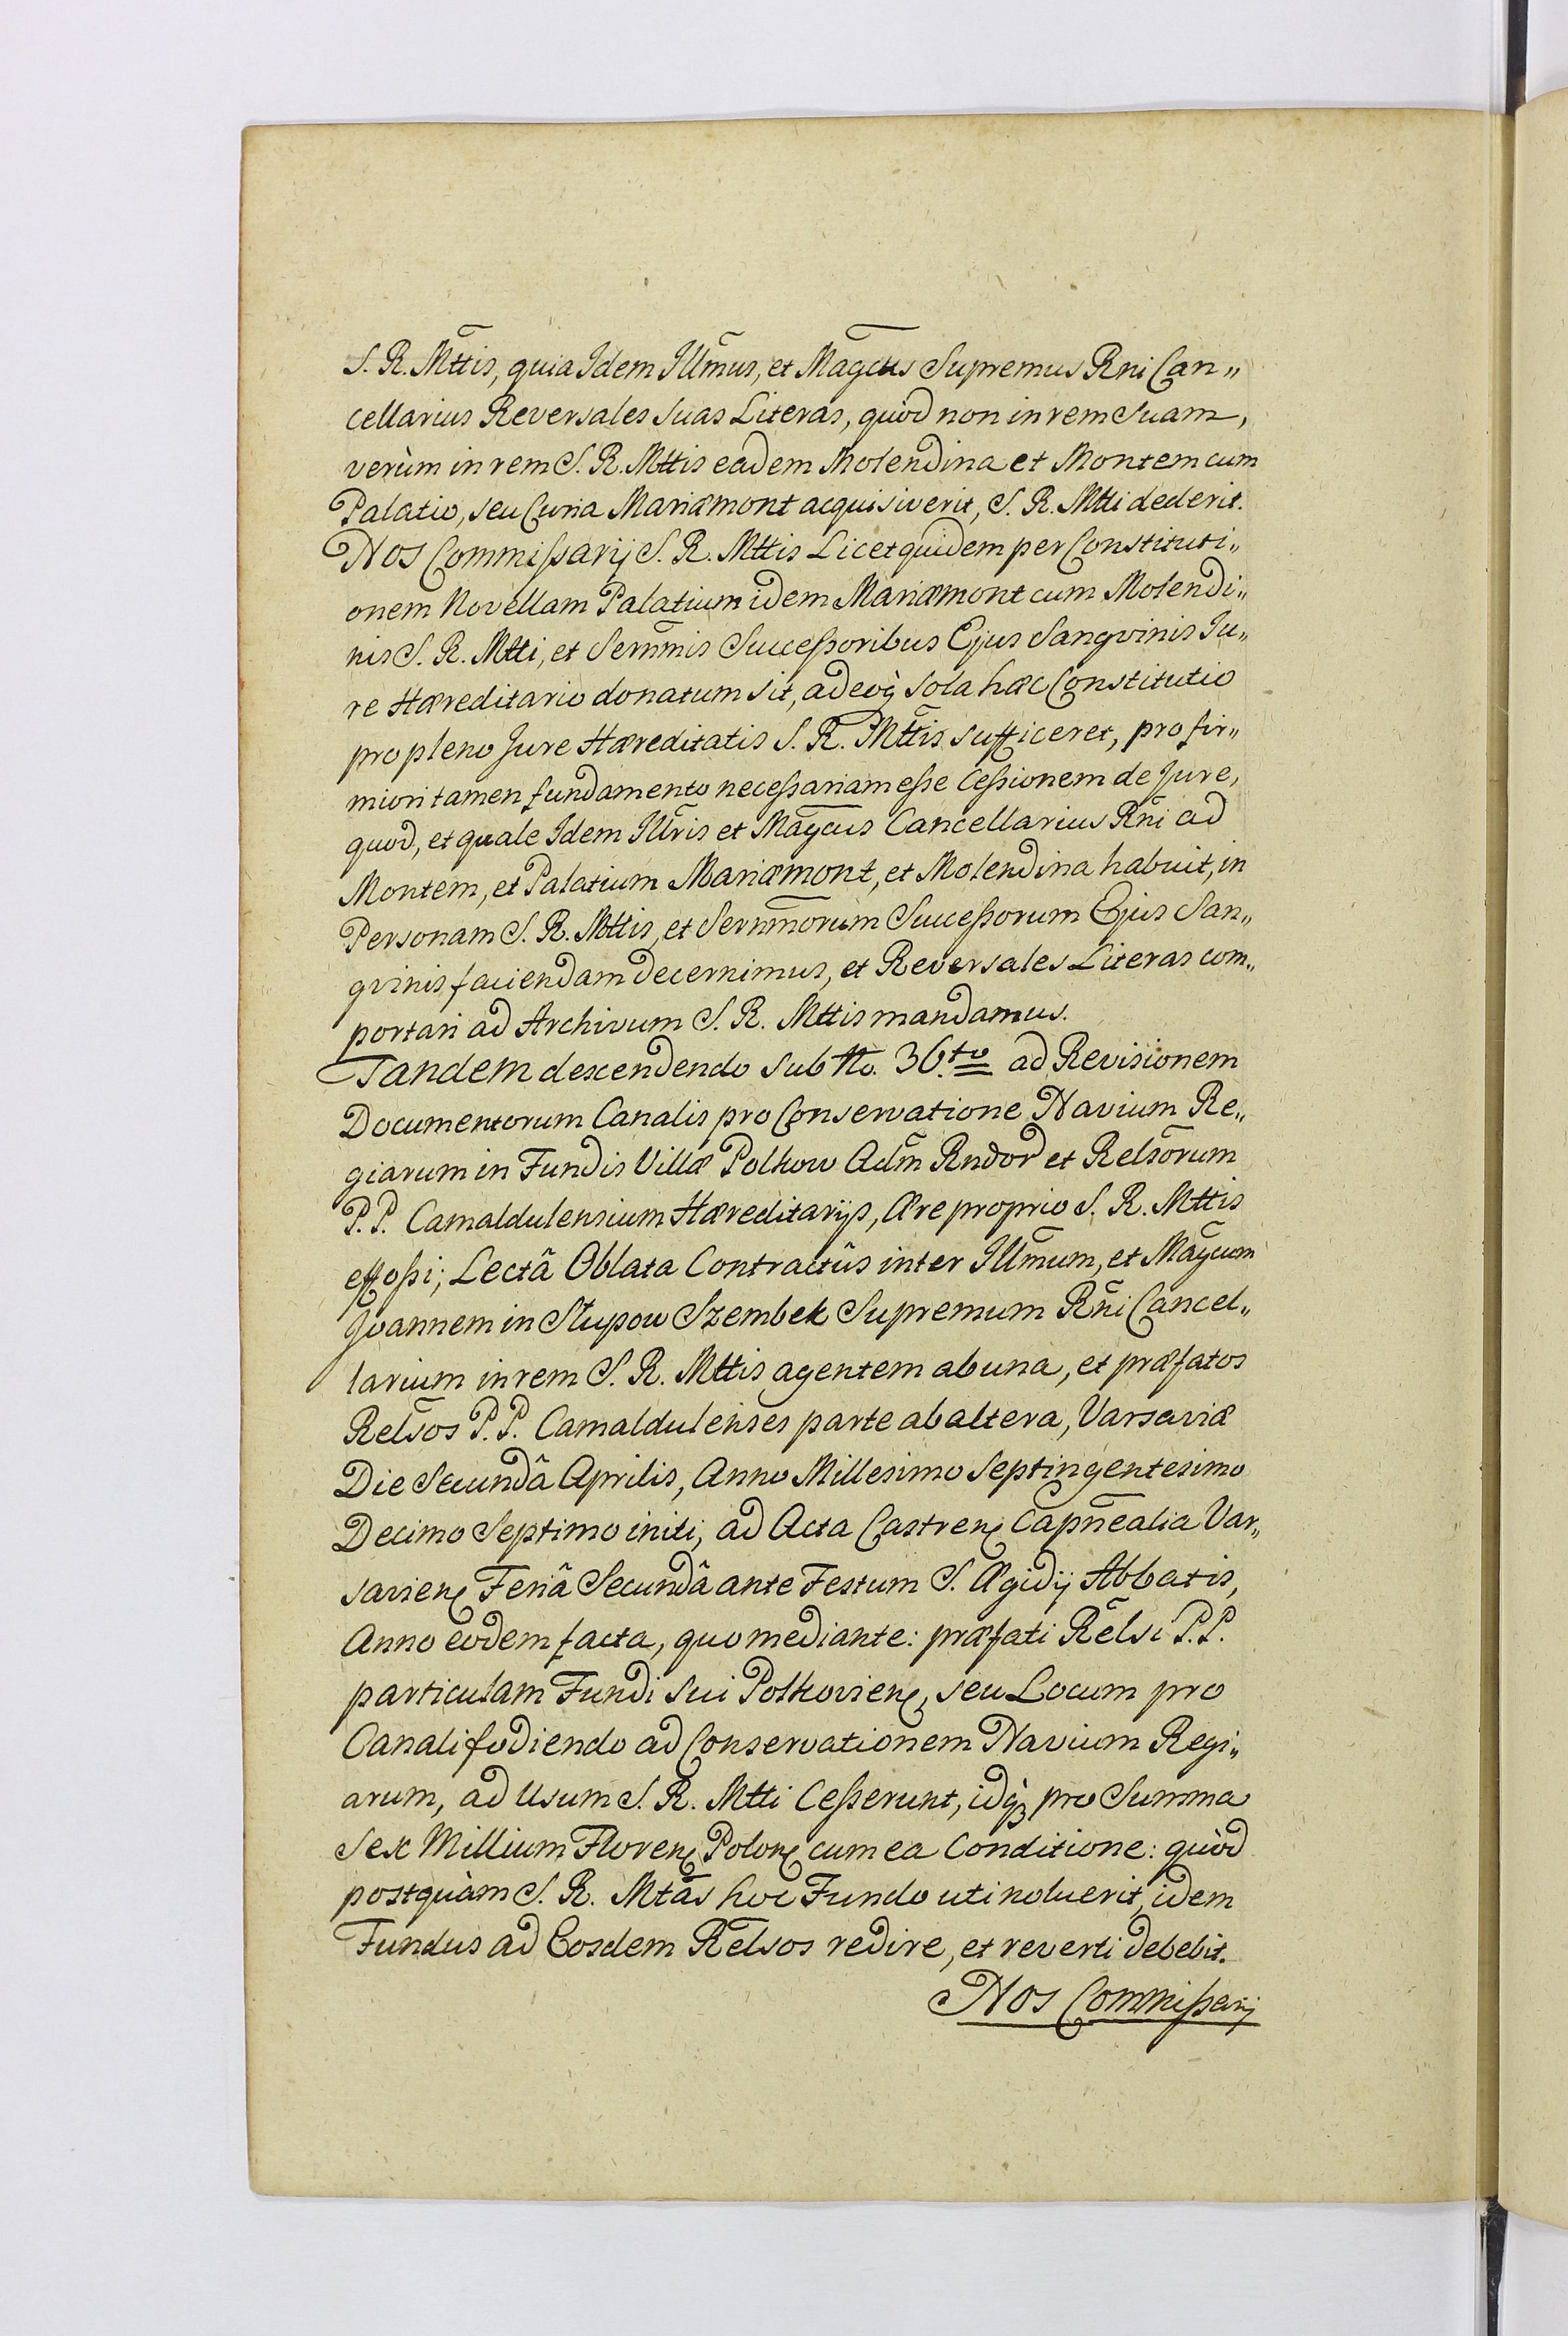 S. R. Mttis, quia Idem Illmus, et Magcus Supremus Rni Can„
cellarius Reversales suas Literas, quòd non in rem suam,
verùm in rem S. R. Mttis eadem Molendina et Montem cum
Palatio, seu Curia Mariæmont acquisiverit, S. R. Mtti dederit.
Nos Commißarij S. R. Mttis Licet quidem per Constituti„
onem Novellam Palatium idem Mariæmont cum Molendi„
nis S. R. Mtti, et Sernmis Succeßoribus Ejus Sangvinis Ju„
re Hæreditario donatum sit, adeoq̀ sola hæc Constitutio
pro pleno Jure Hæreditatis S. R. Mttis sufficeret, pro fir„
miori tamen fundamento neceßariam eße Ceßionem de Jure,
quod, et quale Idem Illris et Magcus Cancellarius Rni ad
Montem, et Palatium Mariæmont, et Molendina habuit, in
Personam S. R. Mttis, et Sernmorum Succeßorum Ejus San„
gvinis faciendam decernimus, et Reversales Literas com„
portari ad Archivum S. R. Mttis mandamus.
Tandem descendendo sub No. 36.to ad Revisionem
Documentorum Canalis pro Conservatione Navium Re„
giarum in Fundis Villæ Polkow Adm Rndor et Relsorum
P. P. Camaldulensium Hæreditarijs, Ære proprio S. R. Mttis
effoßi; Lectâ Oblata Contractûs inter Illmum, et Magcum
Joannem in Słupow Szembek Supremum Rni Cancel„
larium in rem S. R. Mttis agentem ab una, et præfatos
Relsos P. P. Camaldulenses parte ab altera, Varsaviæ
Die Secundâ Aprilis, Anno Millesimo Septingentesimo
Decimo Septimo initi, ad Acta Castren̨ Capnealia Var„
savien̨ Feriâ Secundâ ante Festum S. Ægidij Abbatis,
Anno eodem facta, quo mediante: præfati Relsi P. P.
particulam Fundi sui Polkovien̨, seu Locum pro
Canali fodiendo ad Conservationem Navium Regi„
arum, ad Usum S. R. Mtti Ceßerunt, idq̀ pro Summa
Sex Millium Floren̨ Polon̨ cum ea Conditione: quòd
postquàm S. R. Mtas hoc Fundo uti noluerit, idem
Fundus ad Eosdem Relsos redire, et reverti debebit.
Nos Commißarij